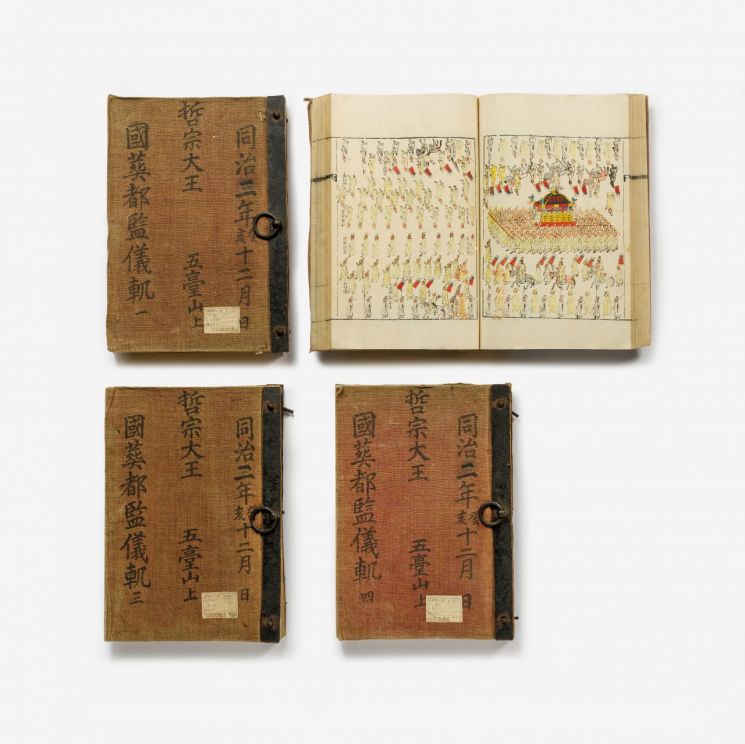 同治二年癸亥十二月 日
哲宗大王 五臺山上
國葬都監儀軌一
同治二年癸亥十二月 日
哲宗大王 五臺山上
國葬都監儀軌三
同治二年癸亥十二月 日
哲宗大王 五臺山上
國葬都監儀軌四